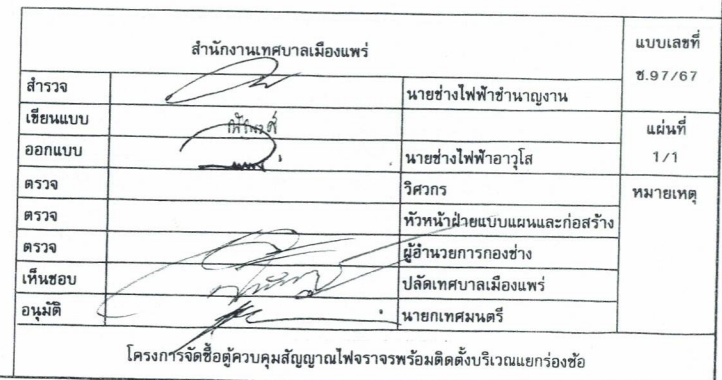 สำนักงานเทศบาลเมืองแพร่
แบบเลขที่
ช.97/67
สำรวจ นายช่างไฟฟ้าชำนาญงาน
เขียนแบบ
แผ่นที่
1/1
ออกแบบ นายช่างไฟฟ้าอาวุโส
ตรวจ วิศวกร
หมายเหตุ
ตรวจ หัวหน้าฝ่ายแบบแผนและก่อสร้าง
ตรวจ ผู้อำนวยการกองช่าง
เห็นชอบ ปลัดเทศบาลเมืองแพร่
อนุมัติ นายกเทศมนตรี
โครงการจัดซื้อตู้ควบคุมสัญญาณไฟจราจรพร้อมติดตั้งบริเวณแยกร่องซ้อ